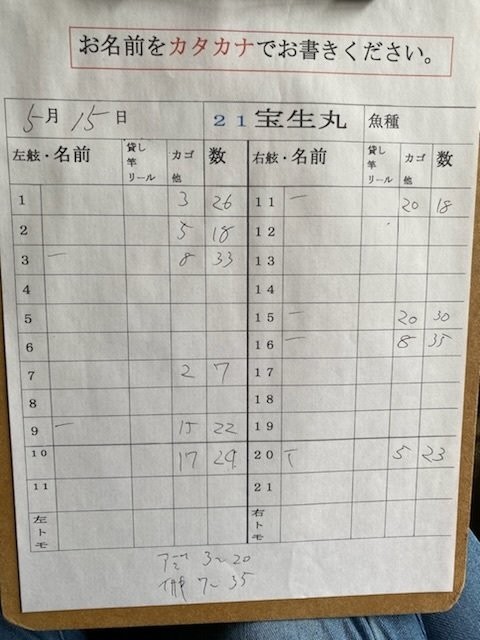 お名前をカタカナでお書きください。
5月15日 21宝生丸 魚種
左舷・名前 貸し竿リール カゴ他 数 右舷・名前 貸し竿リール カゴ他 数
1 3 26 11 一 20 18
2 5 18 12
3 一 8 33 13
4 14
5 15 一 20 30
6 16 一 8 35
7 2 7 17
8 18
9 一 15 22 19
10 17 29 20 5 23
11 21
左トモ 右トモ
3~20
7~35